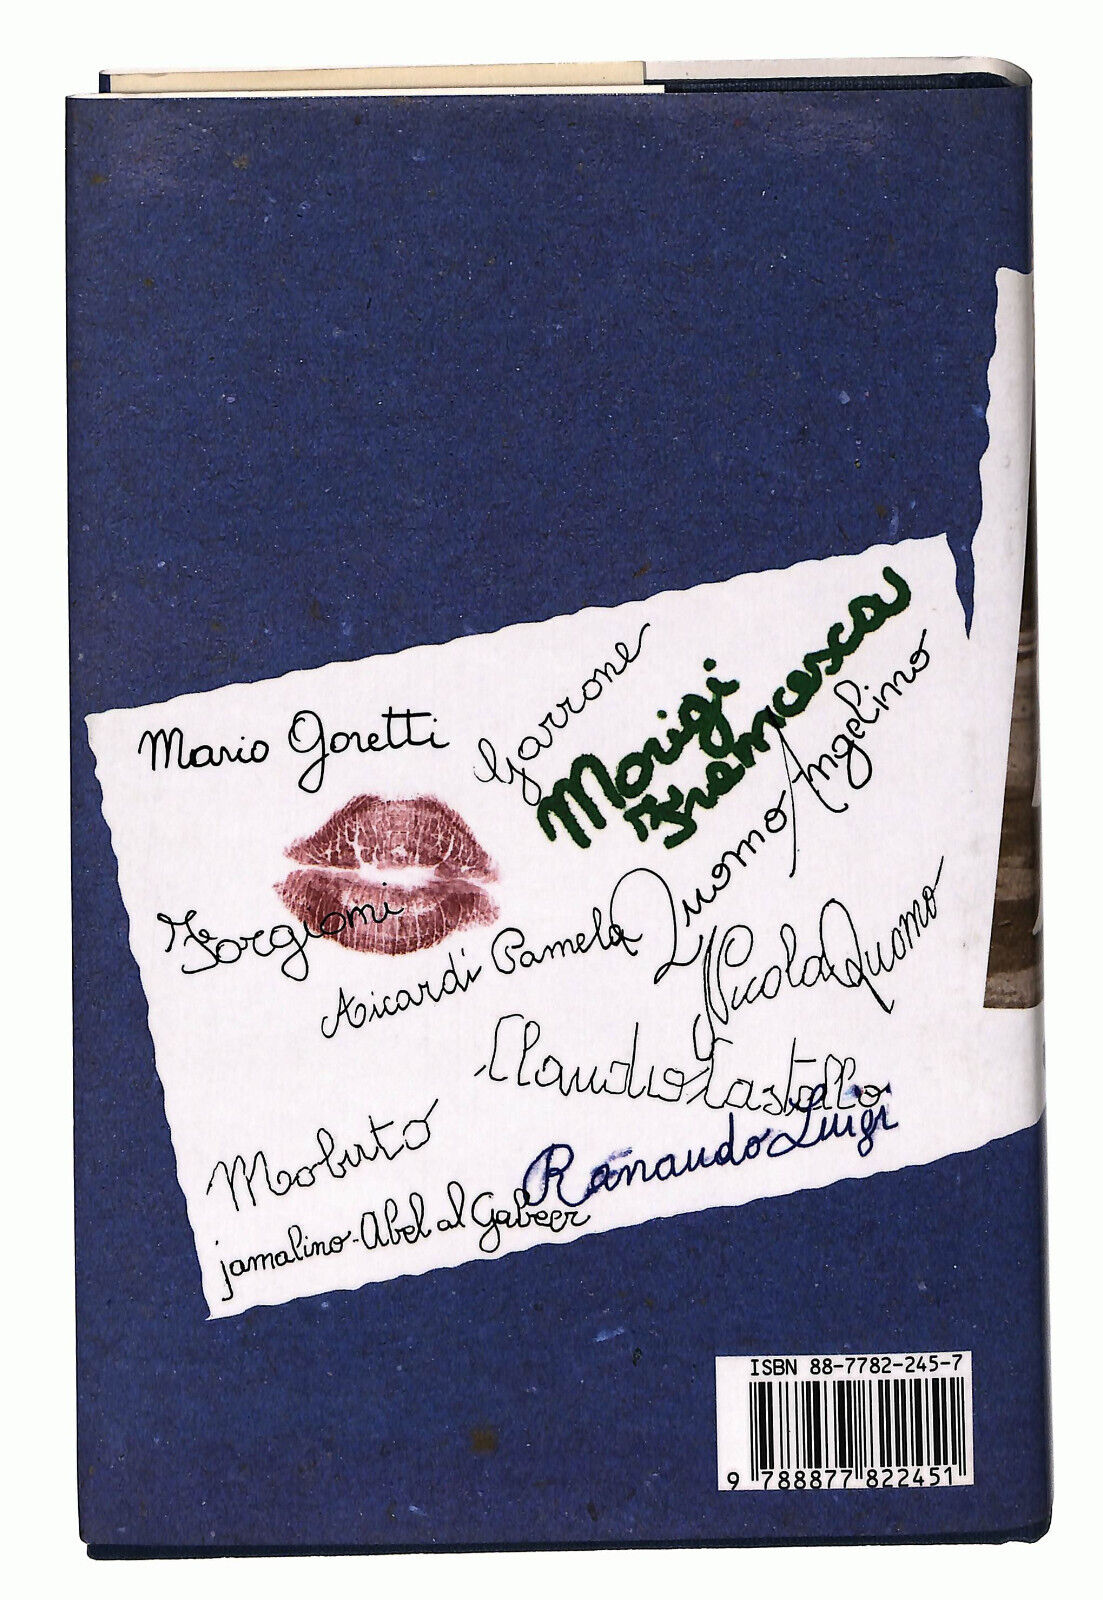 Mario Goretti
Garrone
Morigi
Francesca
Quomo Angelino
Forgioni
Aicardi Pamela
Nicola Quomo
Claudio Castello
Mobuto
Ranaudo Luigi
jamalino-Abel al Gabeer
ISBN 88-7782-245-7
9 788877 822451